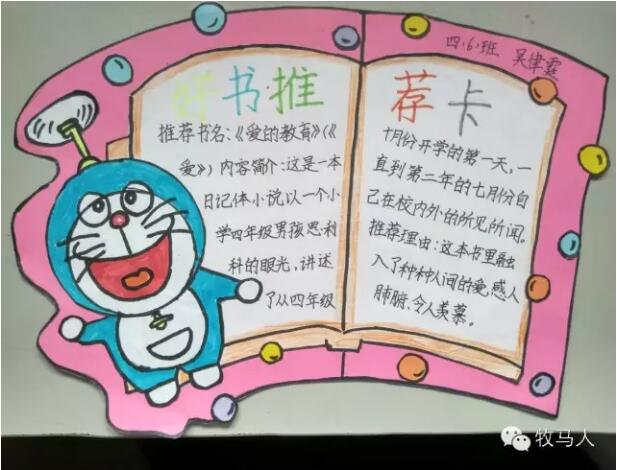 四·6·班 吴律霆
好书·推荐卡
推荐书名:《爱的教育》(《
爱》) 内容简介:这是一本
日记体小说以一个小
学四年级男孩恩利
科的眼光,讲述
了从四年级
十月份开学的第一天,一
直到第二年的七月份自
己在校内外的所见所闻。
推荐理由:这本书里融
入了种种人间的爱,感人
肺腑、令人羡慕。
牧马人